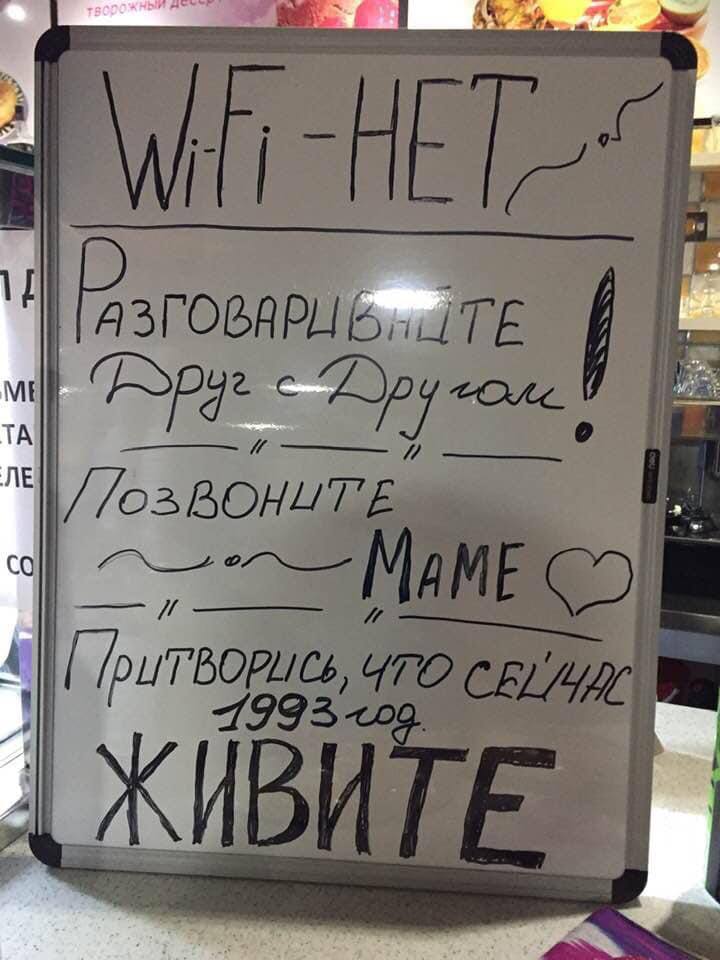 творожный десерт
Wi-Fi - НЕТ
РАЗГОВАРИВАЙТЕ
Друг с Другом!
ПОЗВОНИТЕ
МАМЕ
ПРИТВОРИСЬ, ЧТО СЕЙЧАС
1993 год.
ЖИВИТЕ